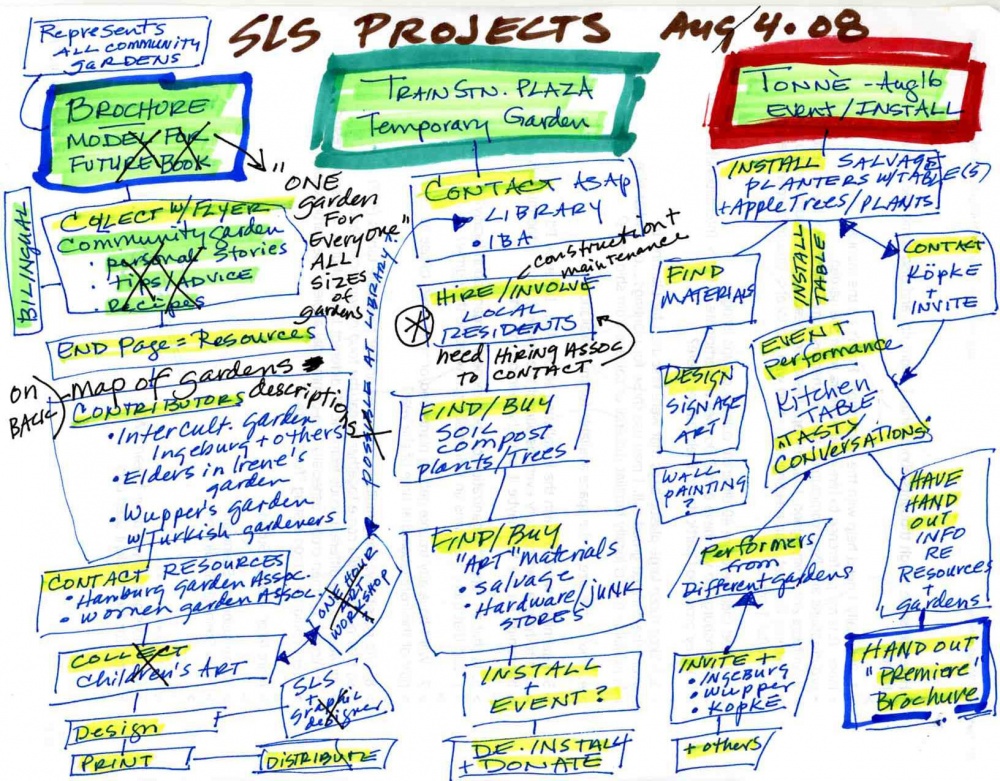 SLS PROJECTS Aug 4.08
Represents
ALL COMMUNITY
GARDENS
BROCHURE
MODEL FOR
FUTURE BOOK
"ONE
garden
FOR
Everyone"
ALL
SIZES
of
gardens
BILINGUAL
COLLECT W/FLYER
Community garden
• personal stories
• Tips/Advice
• Recipes
END Page = Resources
on
BACK
Map of gardens
descriptions
CONTRIBUTORS
• Intercult. garden
Ingeburg + others
• Elders in Irene's
garden
• Wupper's garden
w/Turkish gardeners
CONTACT RESOURCES
• Hamburg Garden Assoc.
• women garden Assoc.
COLLECT
children's ART
Design
PRINT
DISTRIBUTE
SLS
+
graphic
designer
ONE HOUR
ART
WORKSHOP
POSSIBLE AT LIBRARY?
TRAIN STN. PLAZA
Temporary Garden
CONTACT ASAP
• LIBRARY
• IBA
construction +
maintenance
HIRE/INVOLVE
LOCAL
RESIDENTS
need HIRING ASSOC
TO CONTACT
FIND/BUY
SOIL
COMPOST
plants/Trees
FIND/BUY
"ART" materials
• salvage
• Hardware/JUNK
STORES
INSTALL
+
EVENT?
DE-INSTALL
+ DONATE
TONNÈ - Aug 16
EVENT/INSTALL
INSTALL SALVAGE
PLANTERS W/TABLE(S)
+ Apple Trees/PLANTS
FIND
MATERIALS
INSTALL
TABLE
CONTACT
Köpke
+
INVITE
DESIGN
SIGNAGE
ART
WALL
PAINTING
?
EVENT
performance
Kitchen
TABLE
"TASTY
CONVERSATIONS"
Performers
from
Different gardens
INVITE +
• INGEBURG
• Wupper
• KOPKE
+ others
HAVE
HAND
OUT
INFO
RE
RESOURCES
+
gardens
HAND OUT
"Premiere"
Brochure